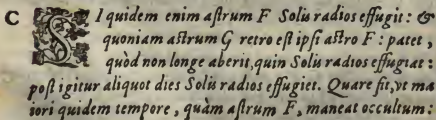 C SI quidem enim aſtrum F Solis radios effugit: &
quoniam aſtrum G retro eſt ipſi aſtro F: patet,
quòd non longe aberit, quin Solis radios effugiat:
poſt igitur aliquot dies Solis radios effugiet. Quare fit, vt ma
iori quidem tempore, quàm aſtrum F, maneat occultum: